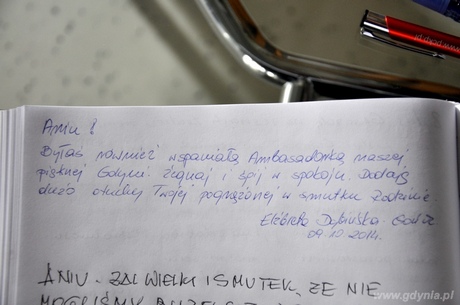 Aniu!
Byłaś również wspaniałą Ambasadorką naszej
pięknej Gdyni. Żegnaj i śpij w spokoju. Dodaję
dużo otuchy Twojej pogrążonej w smutku Rodzinie.
Elżbieta
09.10.2014.
ANIU - ŻAL WIELKI I SMUTEK, ŻE NIE
MOGLIŚMY
www.gdynia.pl